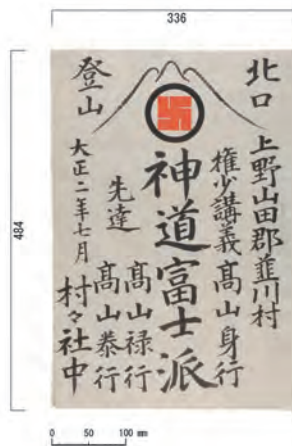 336
484
北口
上野山田郡韮川村
権少講義髙山身行
神道富士派
髙山禄行
先達
髙山泰行
登山
大正二年七月
村々社中
0 50 100 mm